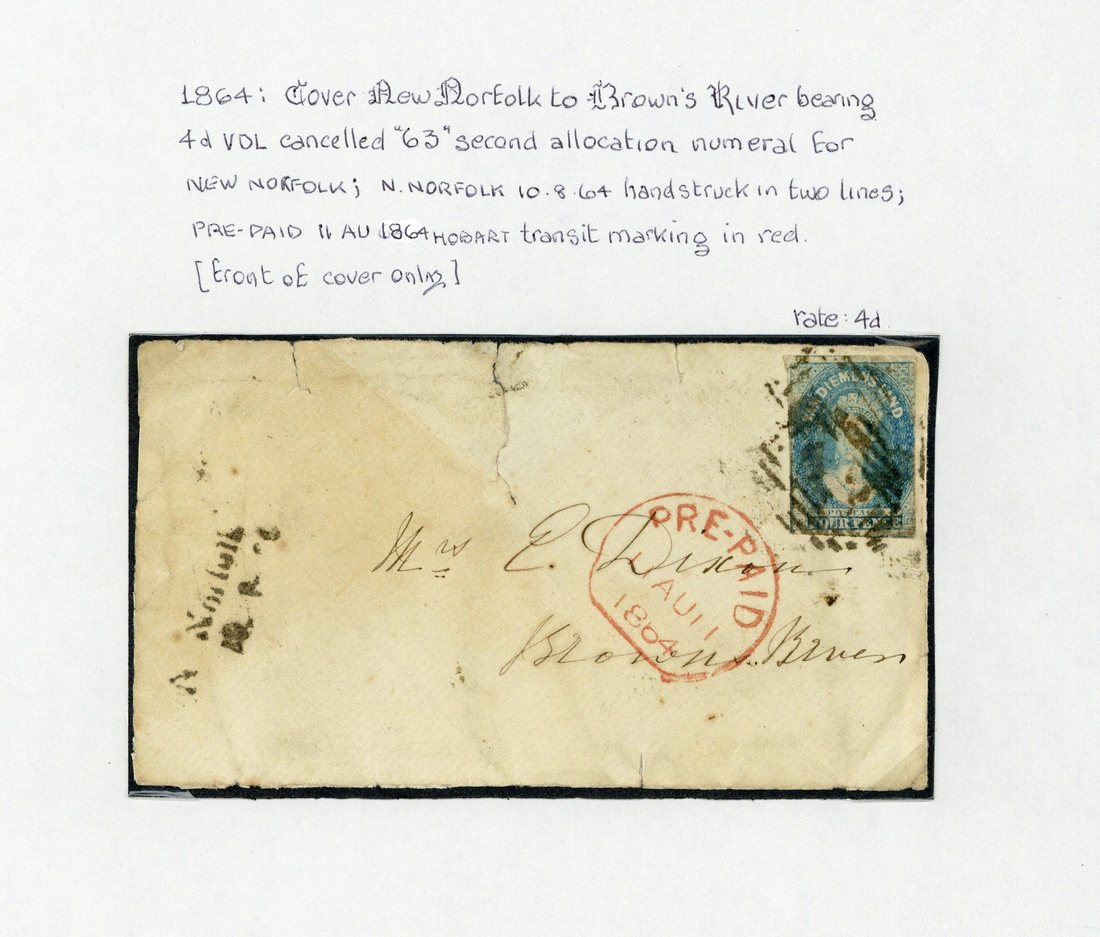 1864: Cover New Norfolk to Brown's River bearing
4d VDL cancelled "63" second allocation numeral for
NEW NORFOLK; N. NORFOLK 10.8.64 handstruck in two lines;
PRE-PAID 11 AU 1864 HOBART transit marking in red.
[front of cover only]
rate: 4d
VAN DIEMENS LAND
POSTAGE
FOUR PENCE
PRE-PAID
AU 11
1864
Mrs E. Dixon
Browns River
N Norfolk